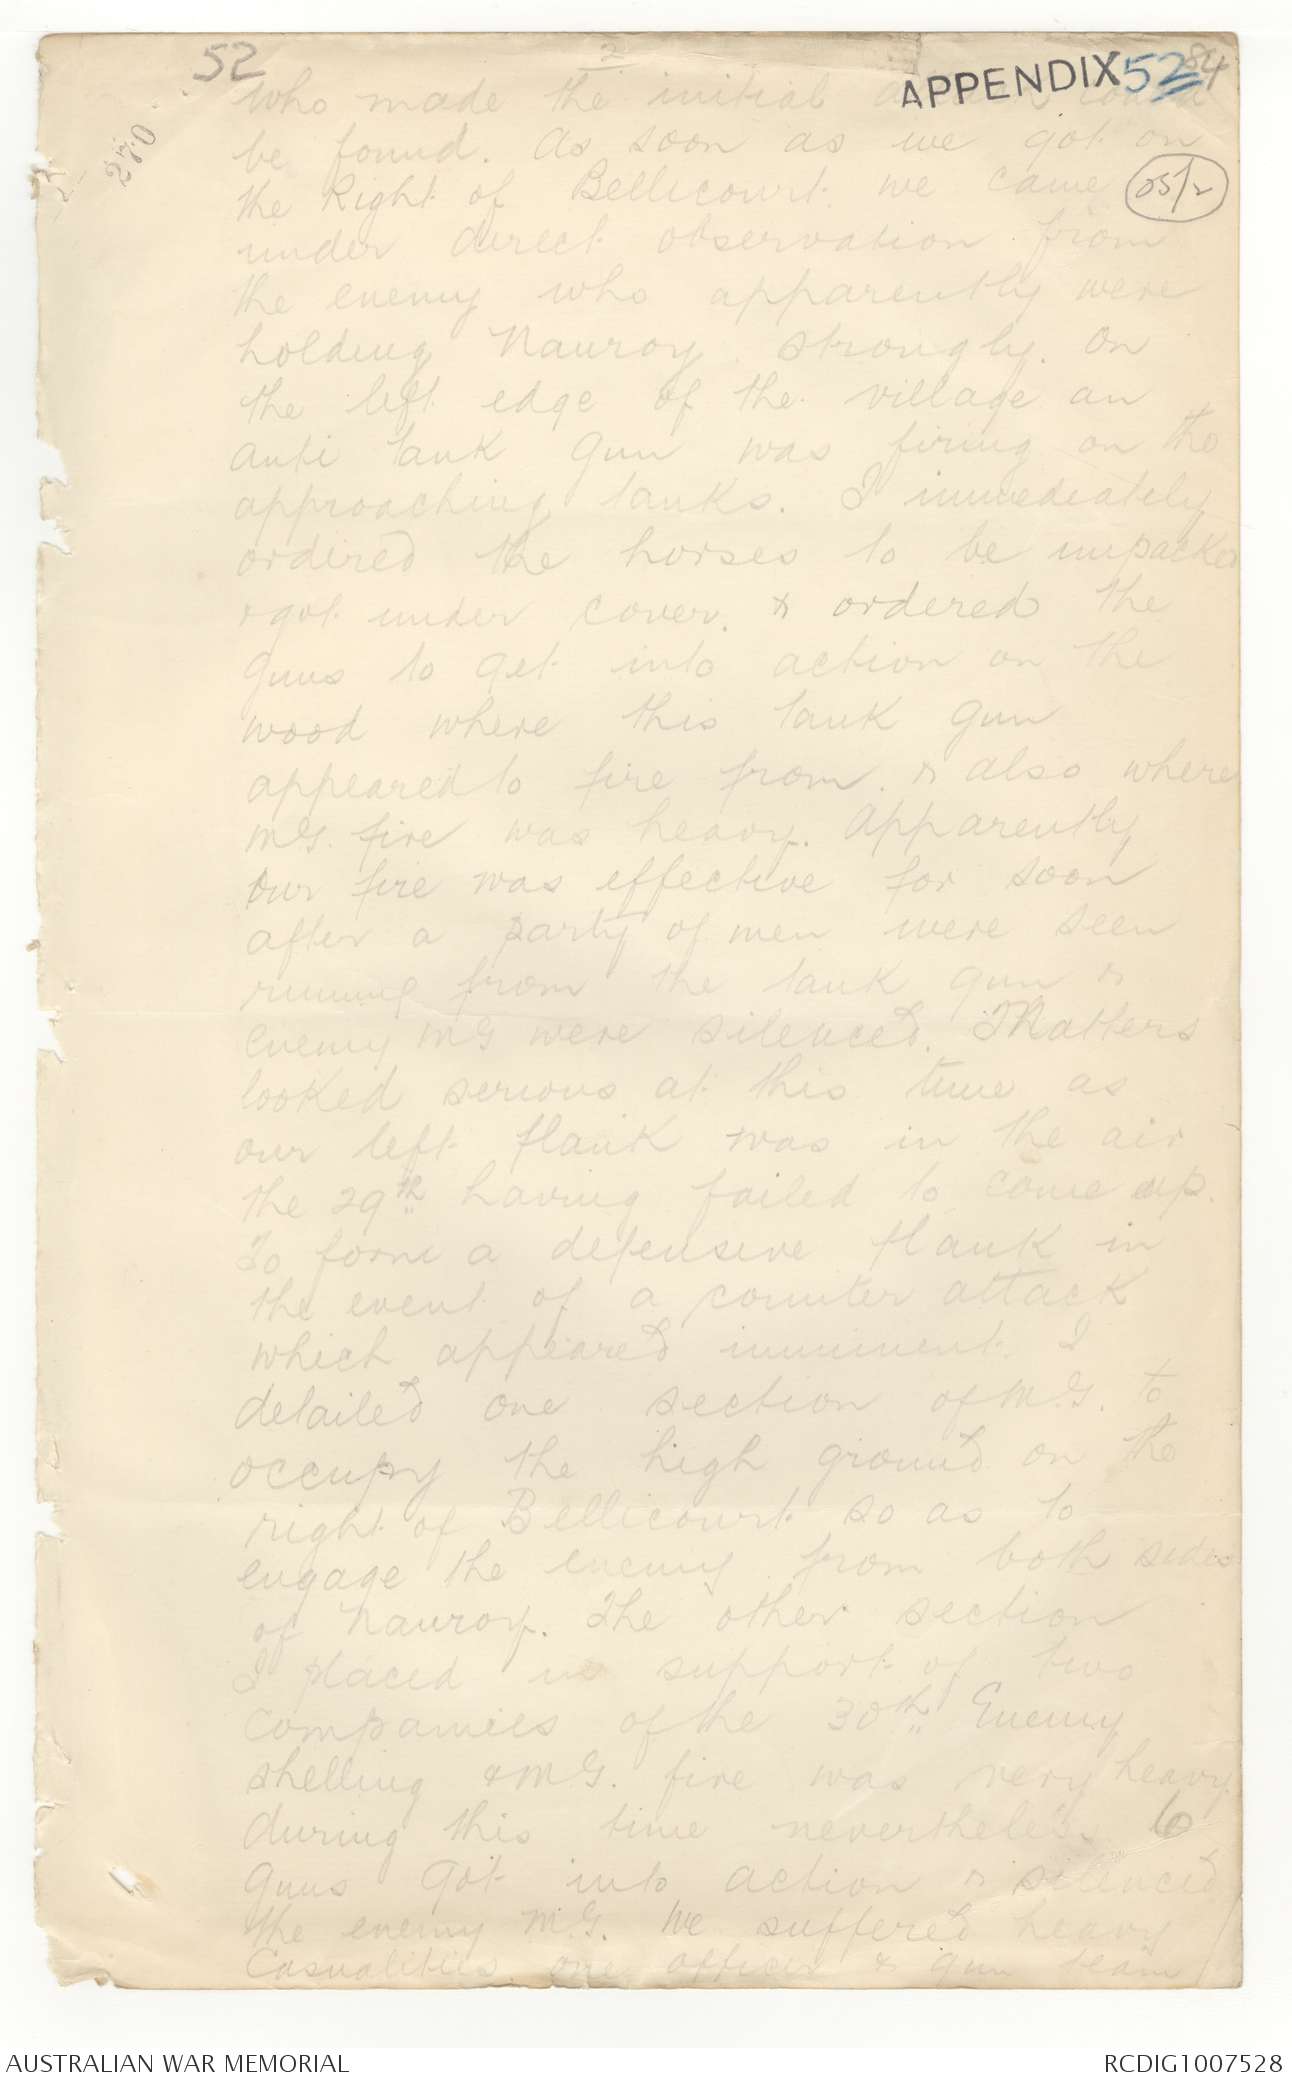 52
2
APPENDIX 52 84
270
05/2
who made the initial attack could
be found. As soon as we got on
the Right of Bellicourt we came
under direct observation from
the enemy who apparently were
holding Nauroy strongly. On
the left edge of the village an
anti tank gun was firing on the
approaching tanks. I immedeately
ordired the horses to be unpacked
& got under cover. & ordered the
guns to get into action on the
wood where this tank gun
appeared to fire from. & also where
M.G. fire was heavy. Apparently
our fire was effective for soon
after a party of men were seen
running from the tank gun &
enemy MG were silenced. Matters
looked serious at this time as
our left flank was in the air
the 29th having failed to come up.
To form a defensive flank in
the event of a counter attack
which appeared imminent. I
detailed one section of M.G. to
occupy the high ground on the
right of Bellicourt so as to
engage the enemy from both sides
of Nauroy. The other section
I placed in support of two
companies of the 30th Enemy
shelling & M.G. fire was very heavy
during this time nevertheless 6
guns got into action & silenced
the enemy M.G. We suffered heavy
casualities one officer & gun team
AUSTRALIAN WAR MEMORIAL
RCDIG1007528